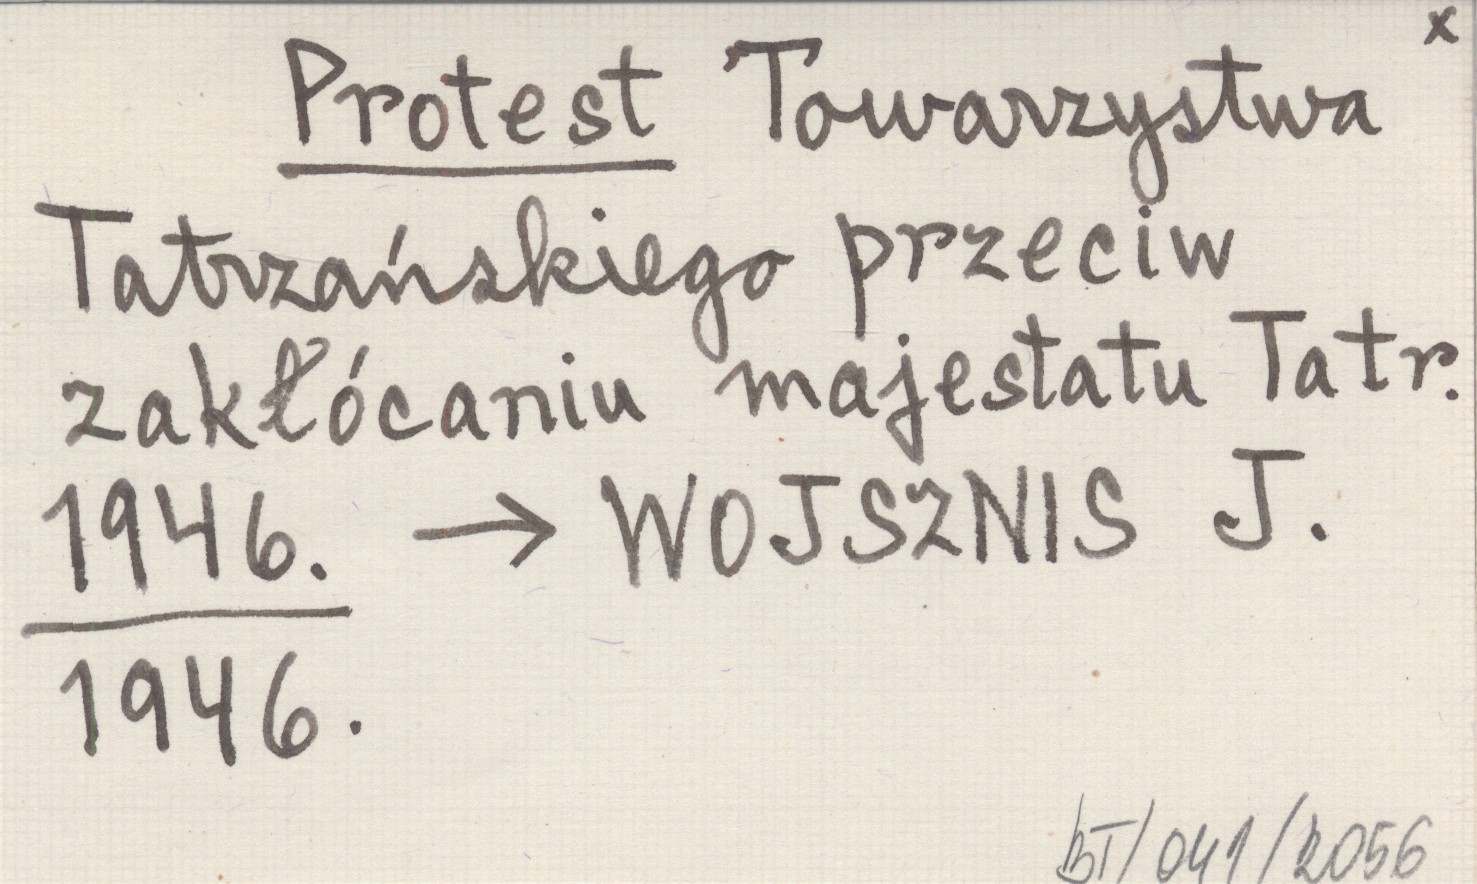 x
Protest Towarzystwa
Tatrzańskiego przeciw
zakłócaniu majestatu Tatr.
1946. → WOJSZNIS J.
1946.
BT/041/2056